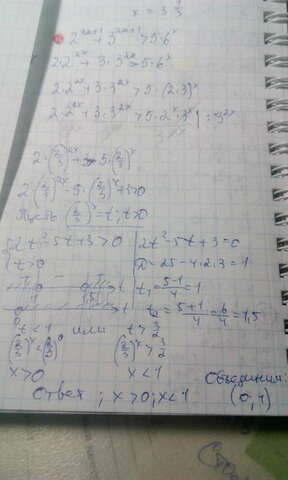 x = 3 1/3
2^{2x+1} + 3^{2x+1} > 5·6^x
2·2^{2x} + 3·3^{2x} > 5·6^x
2·2^{2x} + 3·3^{2x} > 5·(2·3)^x
2·2^{2x} + 3·3^{2x} > 5·2^x·3^x | : 3^{2x}
2·(2/3)^{2x} + 3 > 5·(2/3)^x
2·(2/3)^{2x} - 5·(2/3)^x + 3 > 0
Пусть (2/3)^x = t; t > 0
2t² - 5t + 3 > 0
t > 0
2t² - 5t + 3 = 0
D = 25 - 4·2·3 = 1
t₁ = (5-1)/4 = 1
t₂ = (5+1)/4 = 6/4 = 1,5
t < 1 или t > 3/2
(2/3)^x < (2/3)^0 (2/3)^x > 3/2
x > 0 x < 1
Ответ ; x > 0; x < 1
(0, 1)